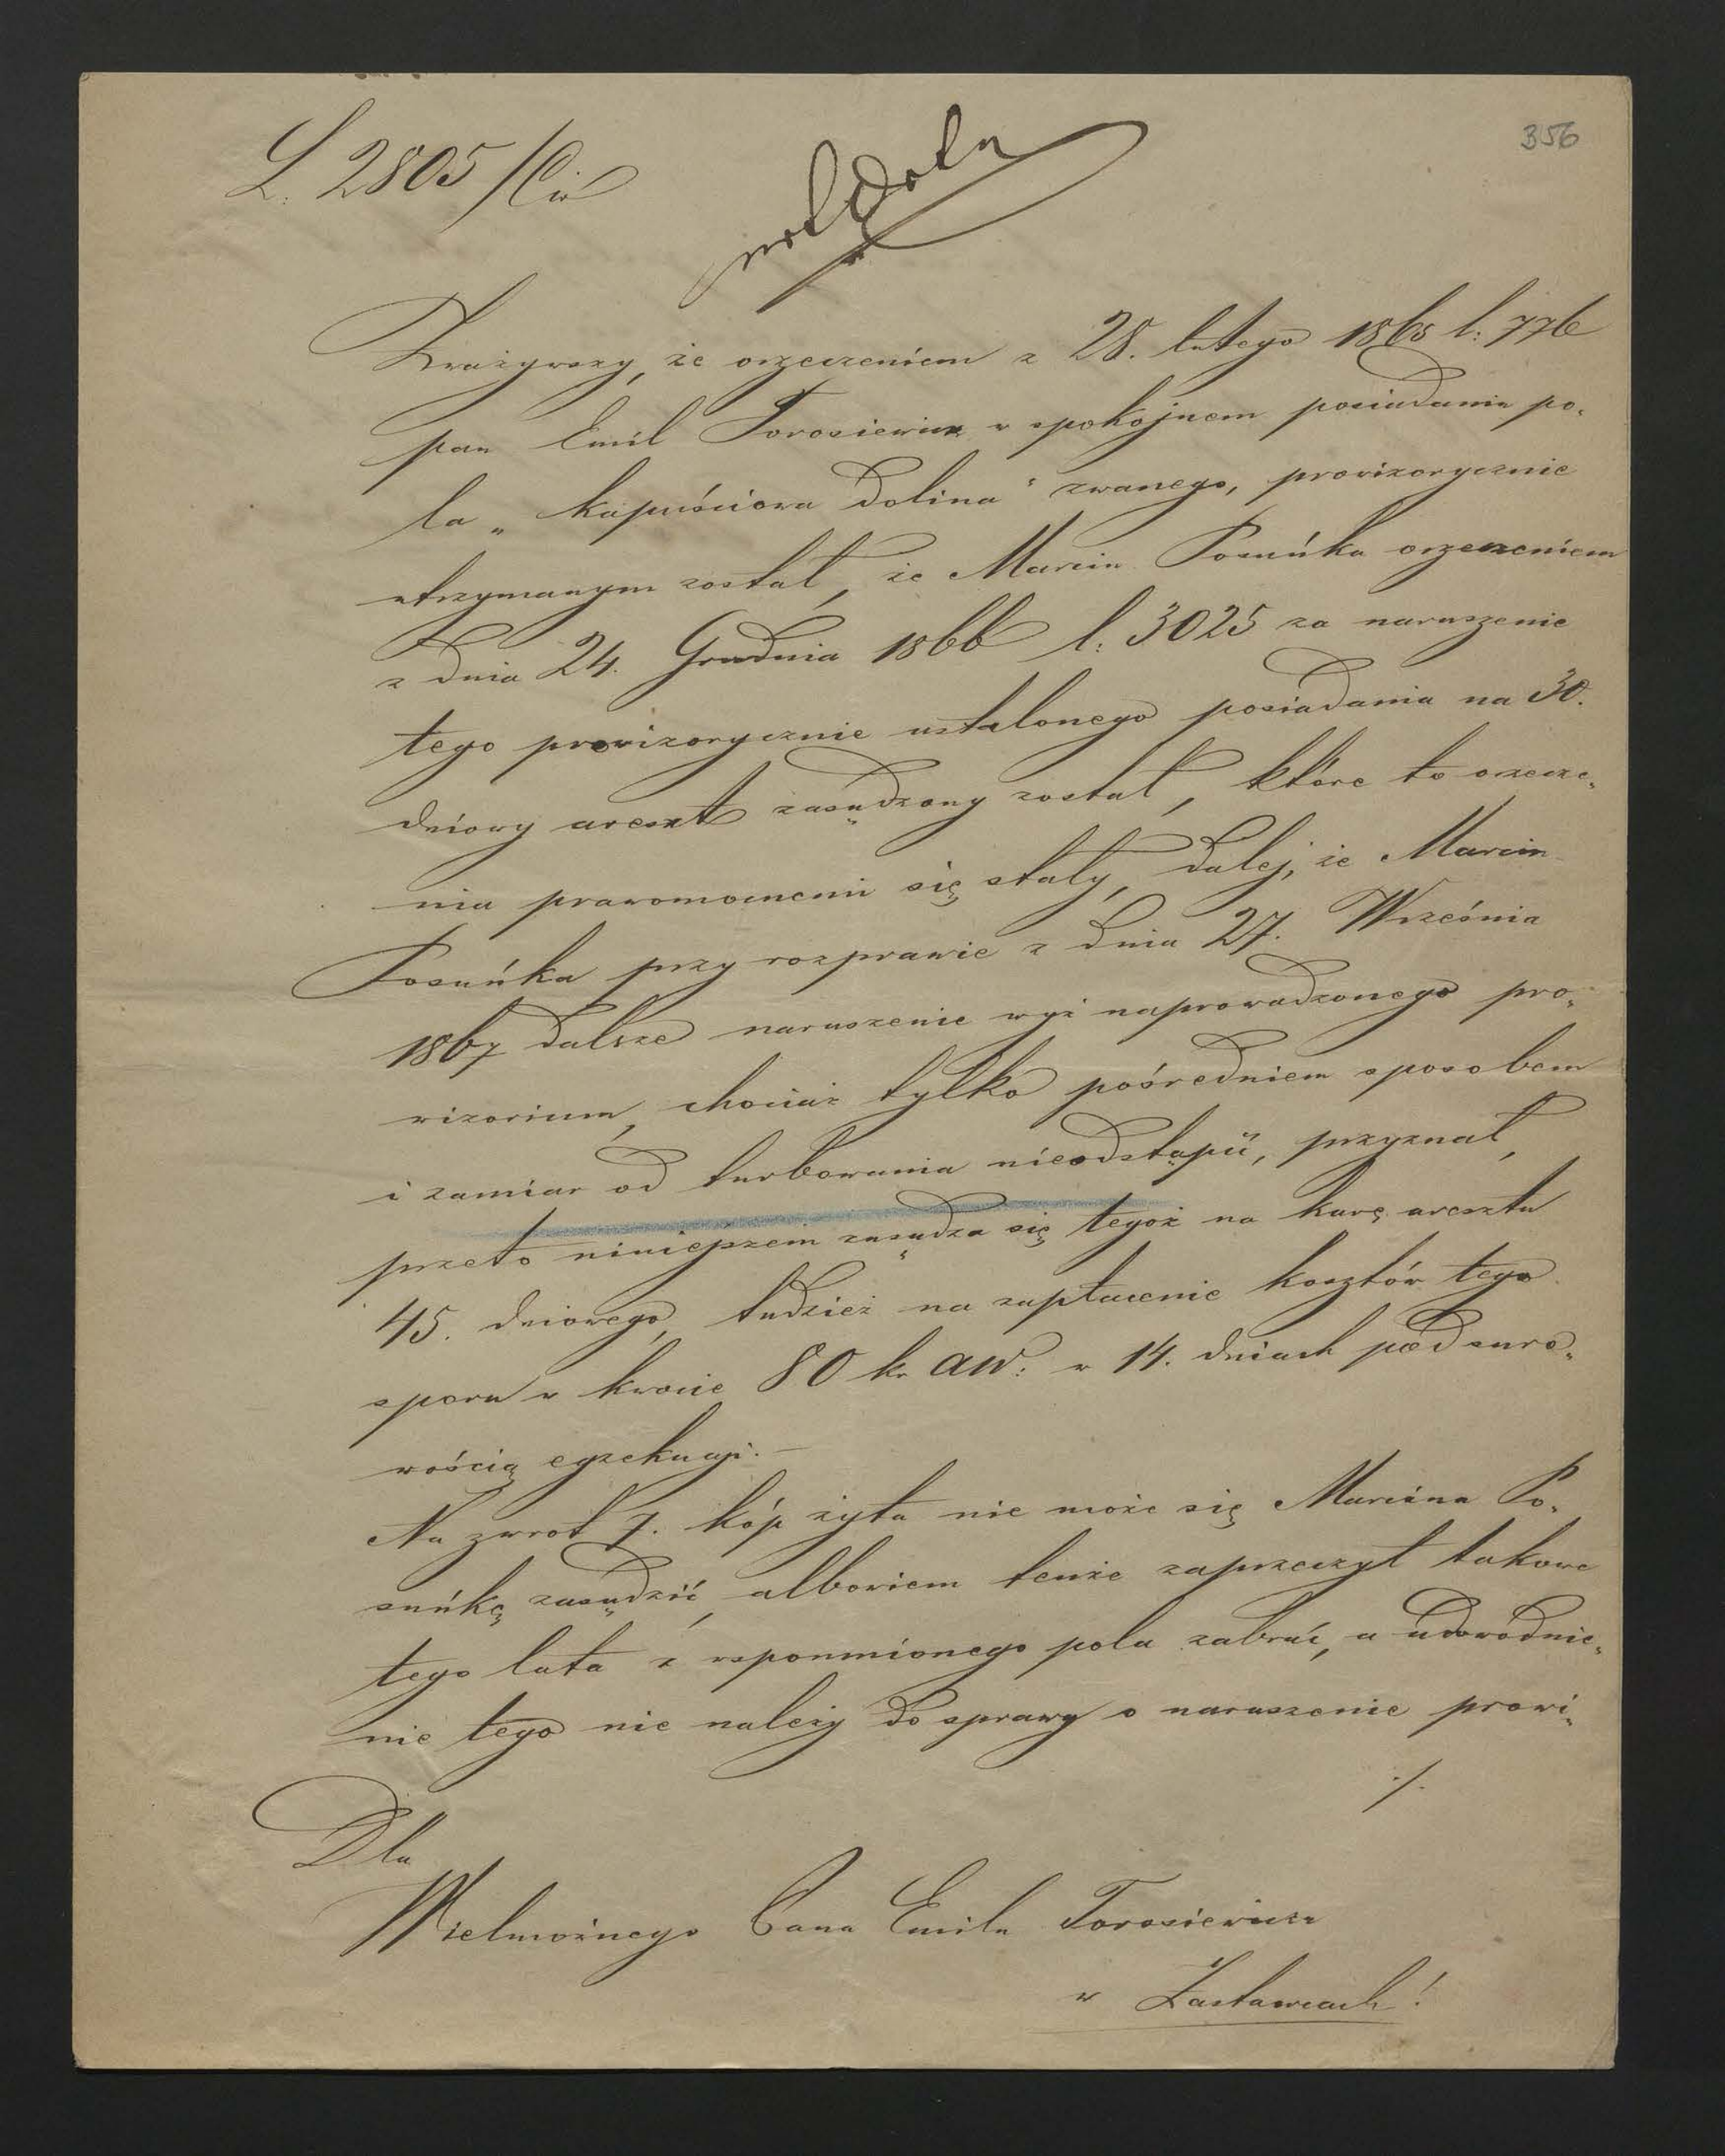 356
L. 2805/Civ
Zważywszy, że orzeczeniem z 28. lutego 1865 l: 776
pan Emil Torosiewicz w spokojnem posiadaniu po-
la „Kapuściowa Dolina" zwanego, prowizorycznie
utrzymanym został, że Marcin Posuńka orzeczeniem
z dnia 24. Grudnia 1866 l: 3025 za naruszenie
tego prowizorycznie ustalonego posiadania na 30.
dniowy areszt zasądzony został, które to orzecze-
nia prawomocnemi się stały, dalej, że Marcin
Posuńka przy rozprawie z dnia 27. Września
1867 dalsze naruszenie wyż naprowadzonego pro-
wizorium, chociaż tylko pośredniem sposobem
i zamiar od turbowania nieodstąpić, przyznał,
przeto niniejszem zasądza się tegoż na karę aresztu
45. dniowego, tudzież na zapłacenie kosztów tego
sporu w kwocie 80 kr aw: w 14. dniach pod suro-
wością egzekucji. —
Na zwrot 7. kóp żyta nie może się Marcina Po-
suńkę zasądzić, albowiem tenże zaprzeczył takowe
tego lata z wspomnionego pola zabrać, a udowodnie-
nie tego nie należy do sprawy o naruszenie prowi-
./.
Dla
Wielmożnego Pana Emila Torosiewicza
w Zastawcach!